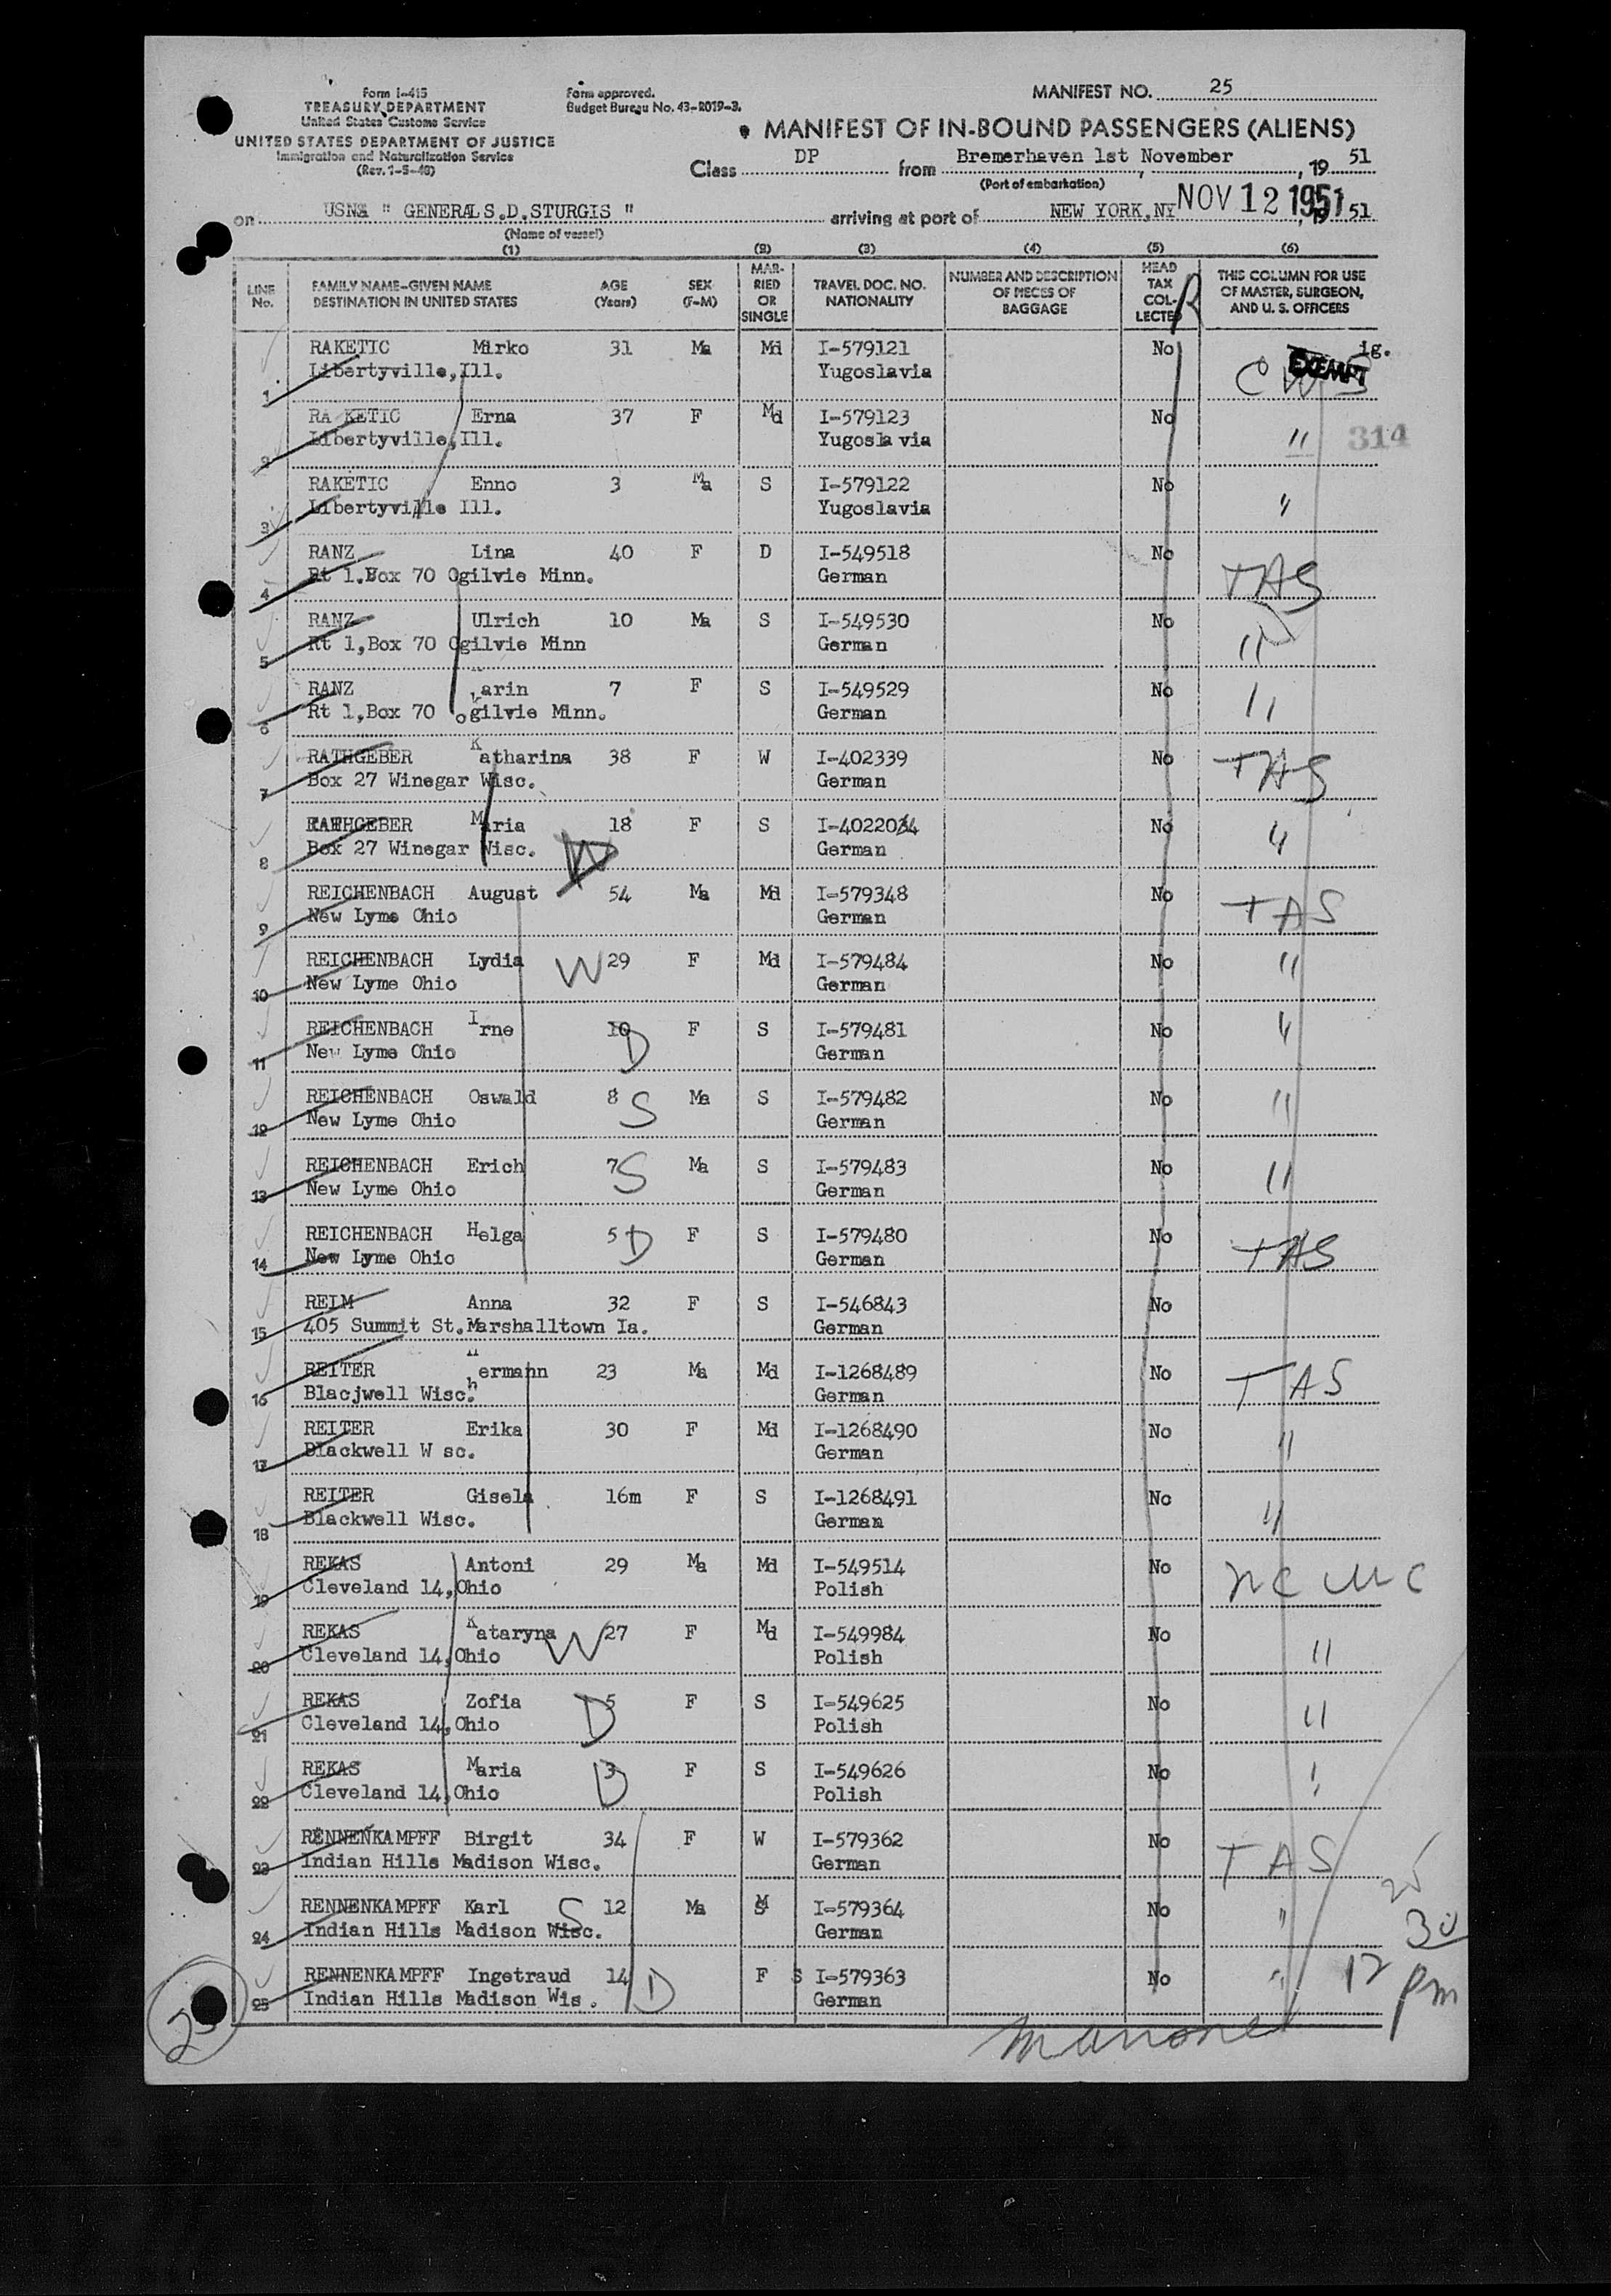 Form I-415
TREASURY DEPARTMENT
United States Customs Service
UNITED STATES DEPARTMENT OF JUSTICE
Immigration and Naturalization Service
(Rev. 1-5-48)
Form approved.
Budget Bureau No. 43-R019-3.
MANIFEST NO. 25
MANIFEST OF IN-BOUND PASSENGERS (ALIENS)
Class DP from Bremerhaven 1st November, 19 51
(Port of embarkation)
on USNS " GENERAL S.D.STURGIS " arriving at port of NEW YORK.NY NOV 12 1951, 19 51
(Name of vessel)
(1) (2) (3) (4) (5) (6)
LINE No. FAMILY NAME-GIVEN NAME DESTINATION IN UNITED STATES AGE (Years) SEX (F-M) MARRIED OR SINGLE TRAVEL DOC. NO. NATIONALITY NUMBER AND DESCRIPTION OF PIECES OF BAGGAGE HEAD TAX COLLECTED THIS COLUMN FOR USE OF MASTER, SURGEON, AND U. S. OFFICERS
R
RAKETIC Mirko 31 Ma Md I-579121 No ig.
1 Libertyville,Ill. Yugoslavia CWS EXEMPT
RA KETIC Erna 37 F Md I-579123 No
2 Libertyville,Ill. Yugosla via " 314
RAKETIC Enno 3 Ma S I-579122 No
3 Libertyville Ill. Yugoslavia "
RANZ Lina 40 F D I-549518 No
4 Rt 1.Box 70 Ogilvie Minn. German TAS
RANZ Ulrich 10 Ma S I-549530 No
5 Rt 1,Box 70 Ogilvie Minn German "
RANZ Karin 7 F S I-549529 No
6 Rt 1,Box 70 Ogilvie Minn. German "
RATHGEBER Katharina 38 F W I-402339 No TAS
7 Box 27 Winegar Wisc. German
RATHGEBER Maria 18 F S No
8 Box 27 Winegar Wisc. W German "
REICHENBACH August 54 Ma Md I-579348 No
9 New Lyme Ohio German TAS
REICHENBACH Lydia W 29 F Md I-579484 No "
10 New Lyme Ohio German
REICHENBACH Irne 10 F S I-579481 No "
11 New Lyme Ohio D German
REICHENBACH Oswald 8 S Ma S I-579482 No "
12 New Lyme Ohio German
REICHENBACH Erich 7 S Ma S I-579483 No "
13 New Lyme Ohio German
REICHENBACH Helga 5 D F S I-579480 No
14 New Lyme Ohio German TAS
REIM Anna 32 F S I-546843 No
15 405 Summit St.Marshalltown Ia. German
REITER Hermann 23 Ma Md I-1268489 No TAS
16 Blacjwell Wisc. German
REITER Erika 30 F Md I-1268490 No
17 Blackwell W sc. German "
REITER Gisela 16m F S I-1268491 No
18 Blackwell Wisc. German "
REKAS Antoni 29 Ma Md I-549514 No
19 Cleveland 14,Ohio Polish
REKAS Kataryna W 27 F Md I-549984 No
20 Cleveland 14,Ohio Polish "
REKAS Zofia D 5 F S I-549625 No
21 Cleveland 14,Ohio Polish "
REKAS Maria 3 D F S I-549626 No
22 Cleveland 14,Ohio Polish "
RENNENKAMPFF Birgit 34 F W I-579362 No
23 Indian Hills Madison Wisc. German TAS
RENNENKAMPFF Karl S 12 Ma S I-579364 No "
24 Indian Hills Madison Wisc. German 30
RENNENKAMPFF Ingetraud 14 D F S I-579363 No " 12 pm
25 Indian Hills Madison Wis . German